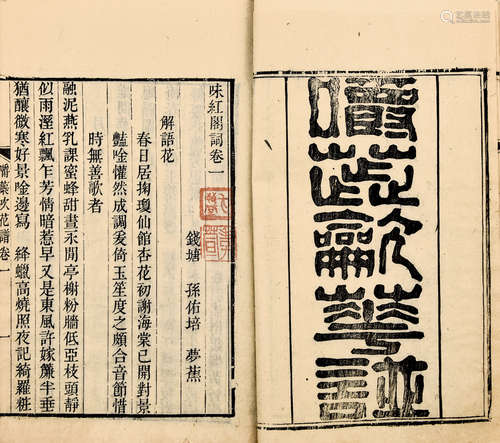 嚼蕊龡華譜
味紅閣詞卷一
錢塘 孫佑培 夢蕉
解語花
春日居掬瓊仙館杏花初謝海棠已開對景
豔唫懽然成調爰倚玉笙度之頗合音節惜
時無善歌者
融泥燕乳課蜜蜂甜晝永閒亭榭粉牆低亞枝頭靜
似雨溼紅飄乍芳情暗惹早又是東風許嫁簾半垂
猶釀微寒好景唫邊寫 絳蠟高燒照夜記綺羅粧
嚼蘂吹花譜卷一 一